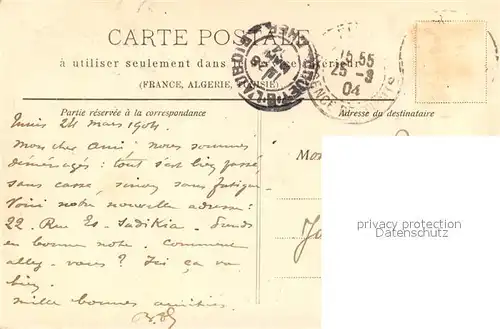 CARTE POSTALE
à utiliser seulement dans le service intérieur
(FRANCE, ALGERIE, TUNISIE)
15.55
25-3
04
Partie réservée à la correspondance
Adresse du destinataire
Tunis 24 mars 1904
Mon cher ami : nous sommes
déménagés : tout s'est bien passé,
sans casse, sinon sans fatigue.
Voici notre nouvelle adresse :
22. Rue Es-Sadikia. Prends
en bonne note. Comment
allez-vous ? Ici ça va
bien
mille bonnes amitiés
privacy protection
Datenschutz